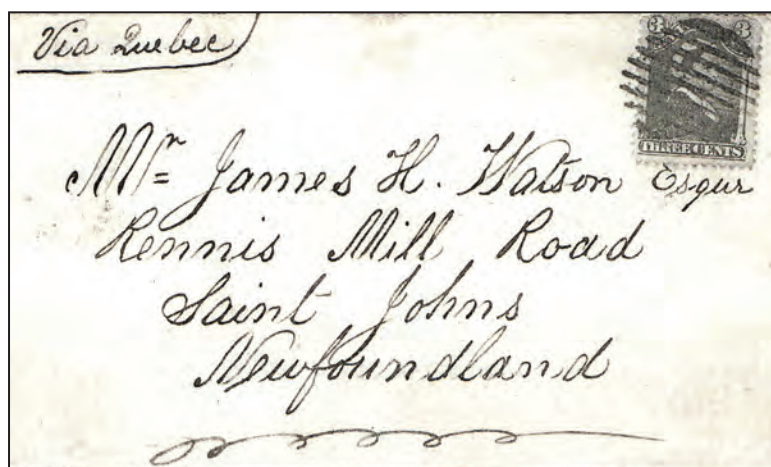 Via Quebec
3 3
THREE CENTS
Mr= James H. Watson Esqur
Rennis Mill Road
Saint Johns
Newfoundland